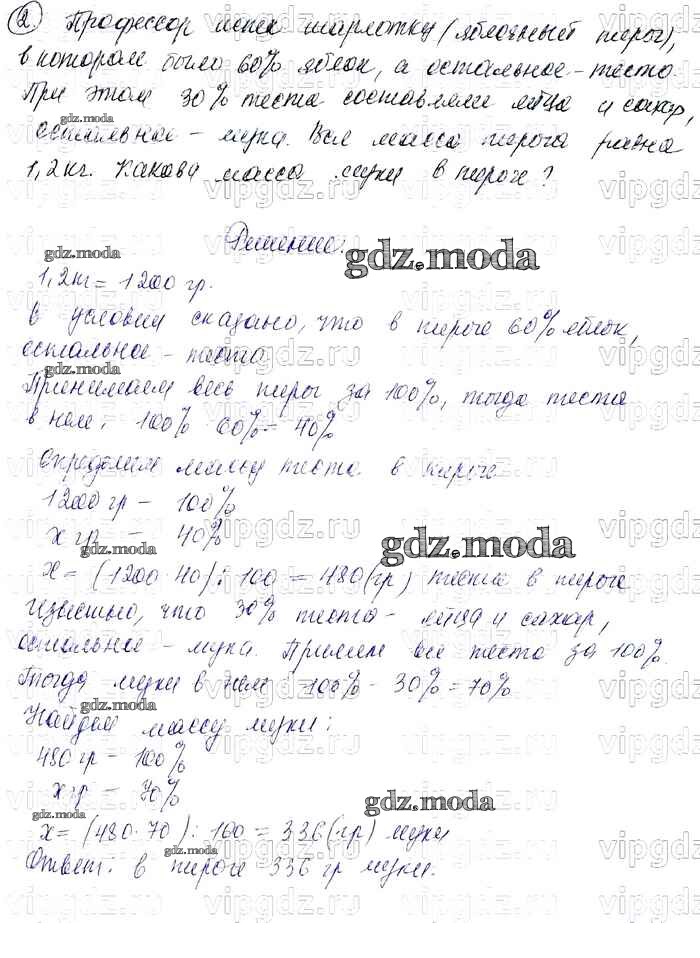 ② Профессор испек шарлотку (яблочный пирог),
в котором было 60% яблок, а остальное - тесто.
При этом 30% теста составляли яйца и сахар,
остальное - мука. Вся масса пирога равна
1,2 кг. Какова масса муки в пироге?
Решение.
gdz.moda
gdz.moda
1,2 кг = 1200 гр.
В условии сказано, что в пироге 60% яблок,
остальное - теста
gdz.moda
Принимаем весь пирог за 100%, тогда теста
в нем: 100% 60% = 40%
Определим массу теста в пироге
1200 гр - 100%
х гр - 40%
gdz.moda
gdz.moda
х = (1200 · 40) : 100 = 480 (гр) теста в пироге
Известно, что 30% теста - яйца и сахар,
остальное - мука. Примем все тесто за 100%.
Тогда муки в нем 100% - 30% = 70%
gdz.moda
Найдем массу муки:
480 гр - 100%
х гр - 70%
gdz.moda
gdz.moda
х = (480 · 70) : 100 = 336 (гр) муки
gdz.moda
Ответ: в пироге 336 гр муки.
vipgdz.ru